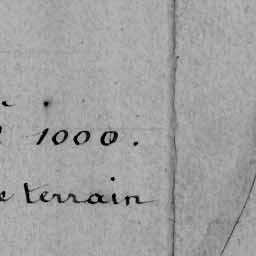 1000.
terrain